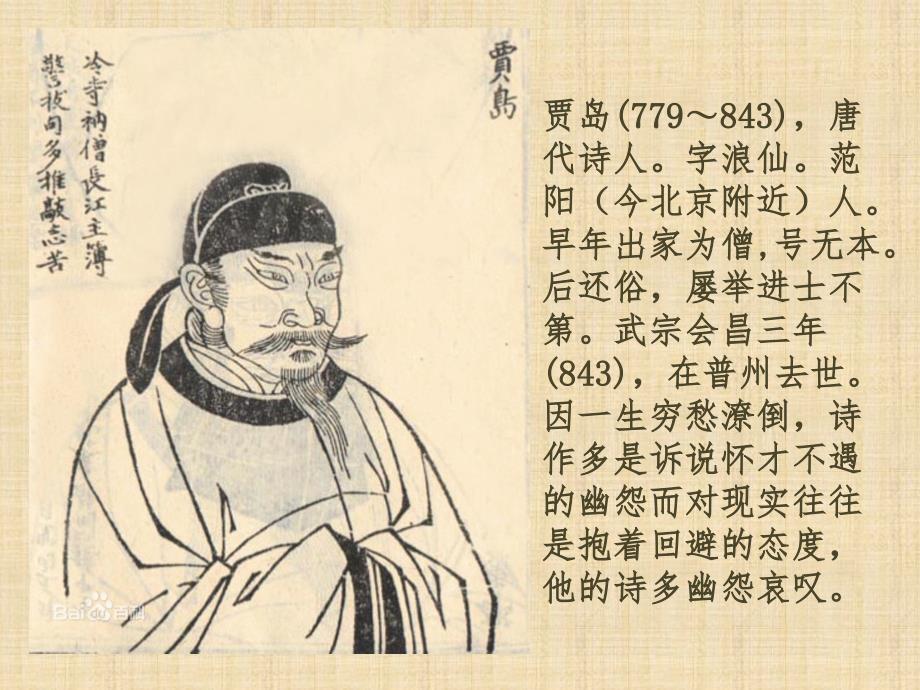 賈島
冷寺衲僧長江主簿
警拔句多推敲忘苦
贾岛(779～843)，唐
代诗人。字浪仙。范
阳（今北京附近）人。
早年出家为僧,号无本。
后还俗，屡举进士不
第。武宗会昌三年
(843)，在普州去世。
因一生穷愁潦倒，诗
作多是诉说怀才不遇
的幽怨而对现实往往
是抱着回避的态度，
他的诗多幽怨哀叹。
Baidu百科